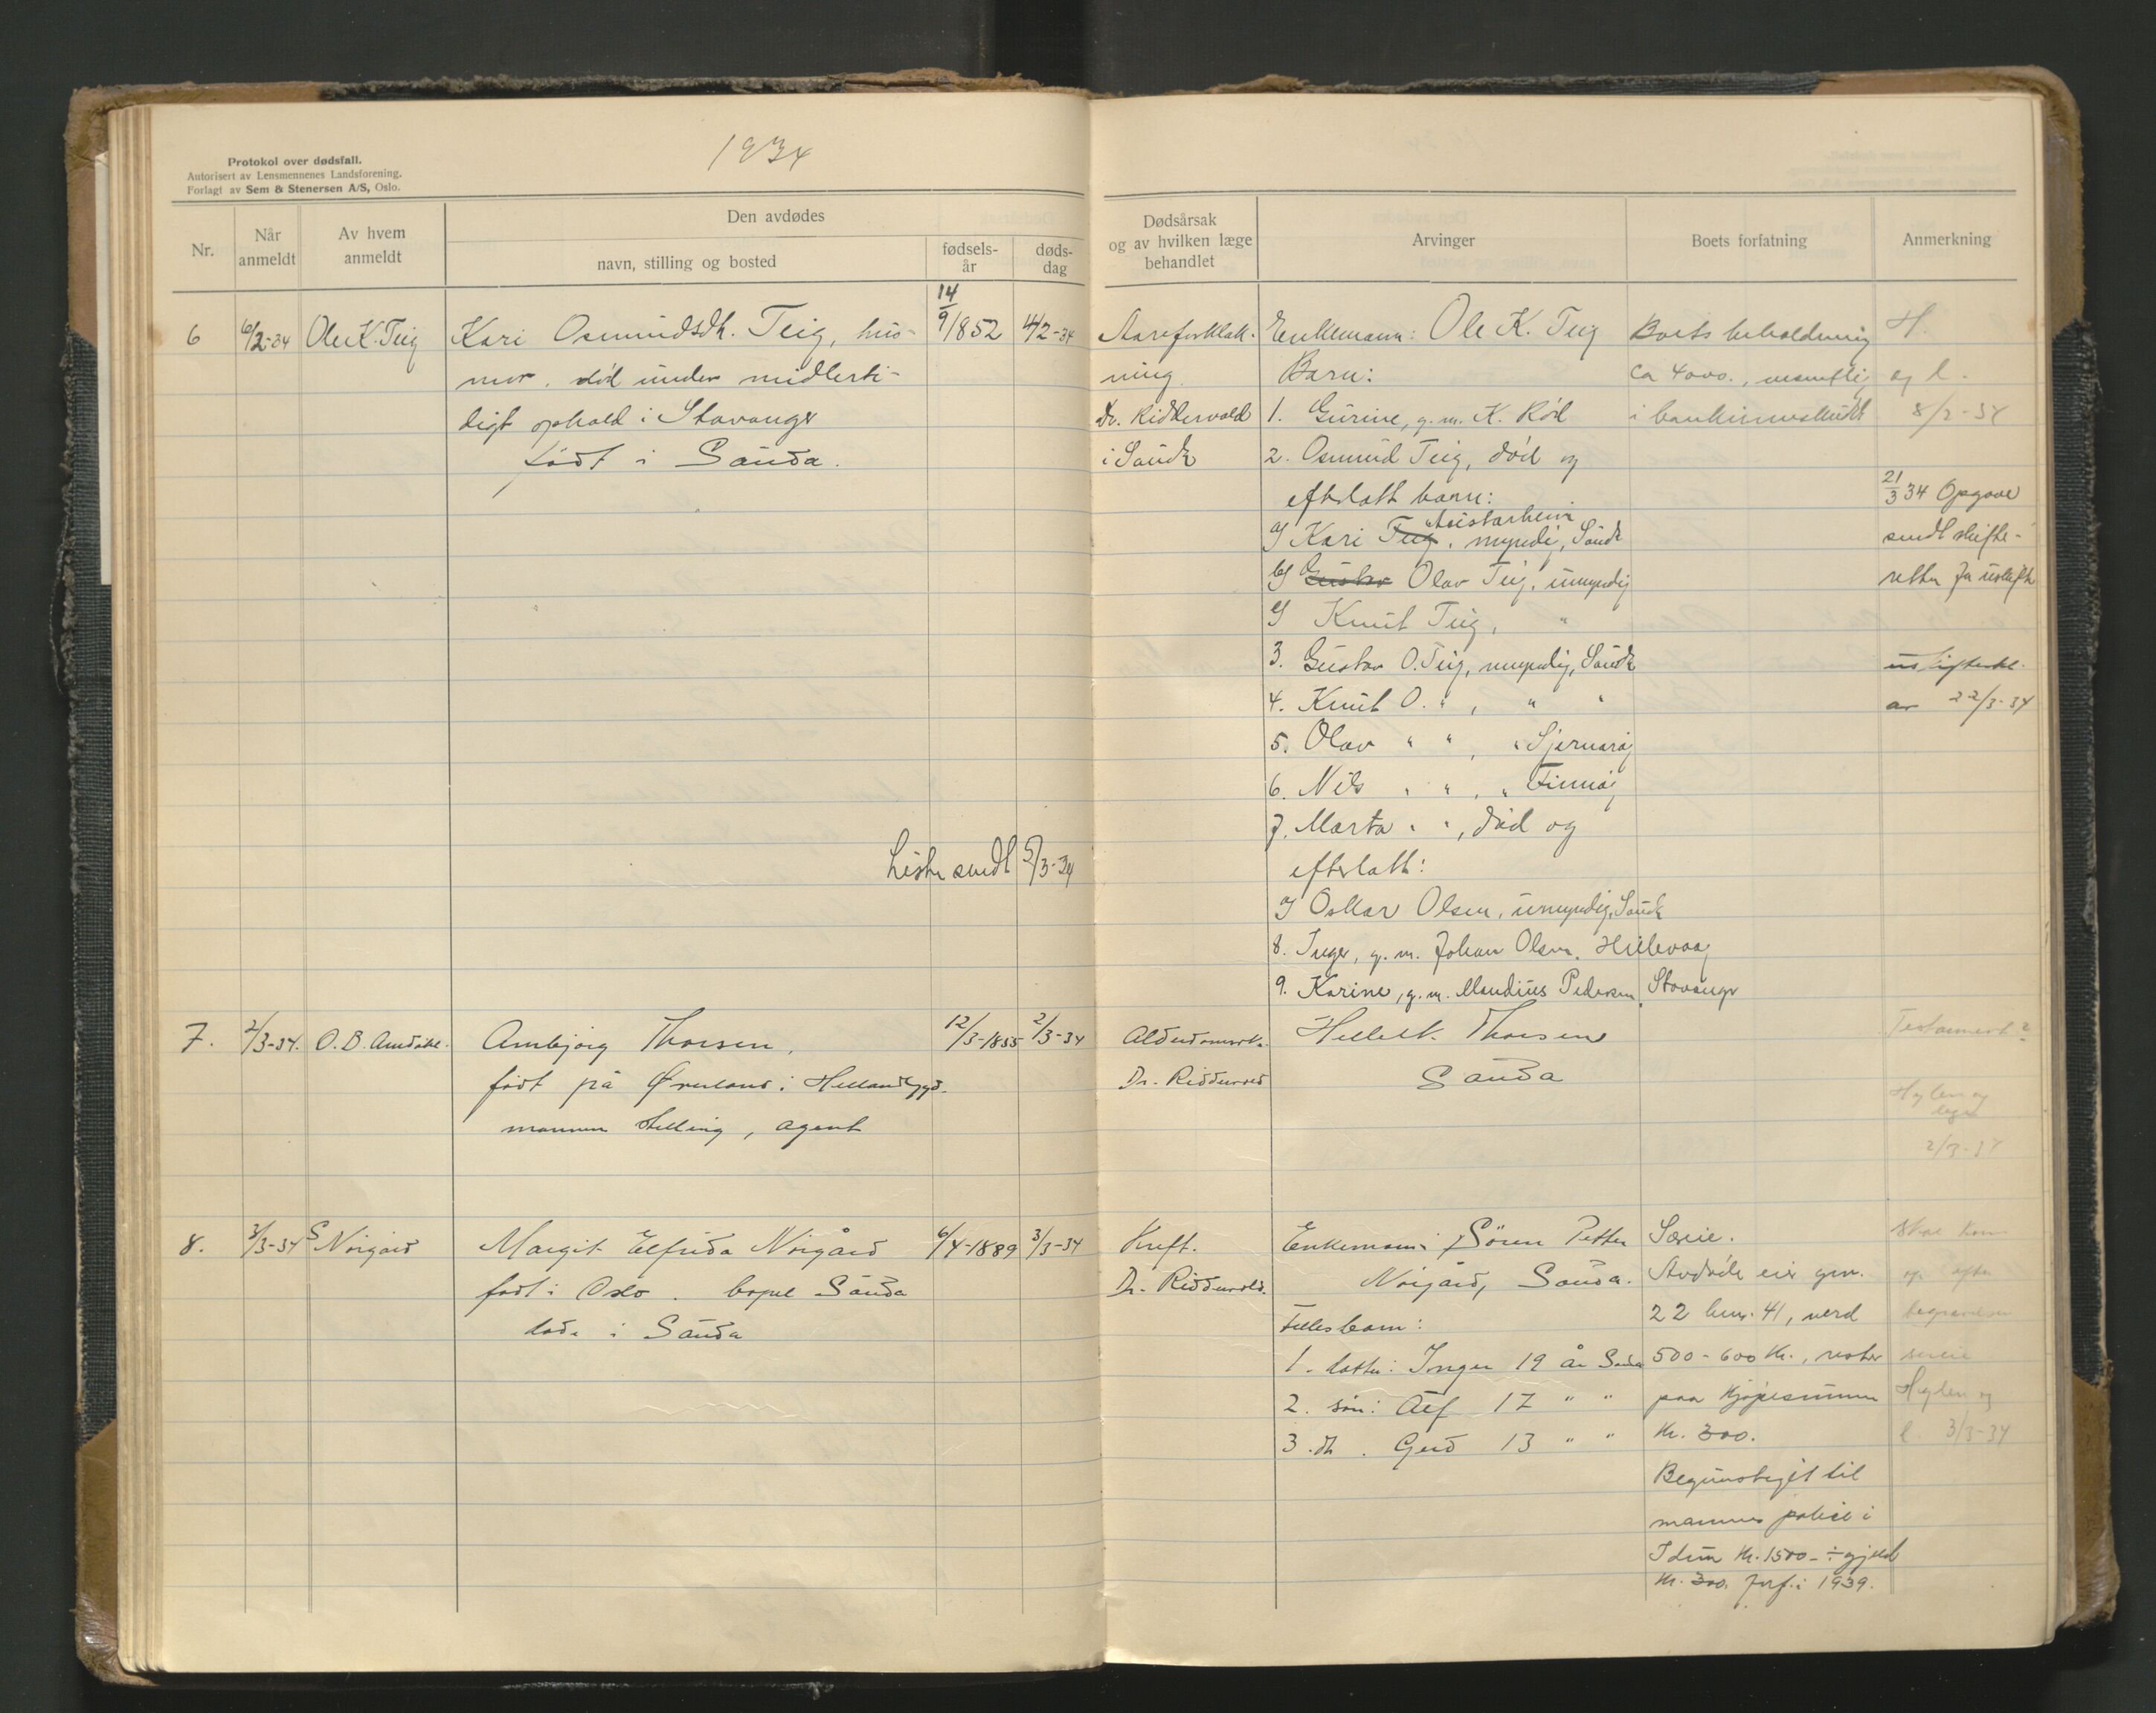 1934
Protokol over dødsfall.
Autorisert av Lensmennenes Landsforening.
Forlagt av Sem & Stenersen A/S, Oslo.
Nr.
Når anmeldt
Av hvem anmeldt
Den avdødes
navn, stilling og bosted
fødsels-år
døds-dag
Dødsårsak og av hvilken læge behandlet
Arvinger
Boets forfatning
Anmerkning
6 6/2-34 Ole K. Teig Kari Osmundsdtr. Teig, hus-
mor. død under midlerti-
digt ophold i Stavanger
født i Sauda.
14/9 1852 4/2-34
Aareforkalk-
ning
Dr. Riddervold
i Sauda
Enkemann: Ole K. Teig
Barn:
1. Gurine, g. m. K. Rød
2. Osmund Teig, død og
efterlatt barn:
a) Kari Teig, myndig, Sauda
b) Gustav Olav Teig, umyndig
c) Knut Teig, "
3. Gustav O. Teig, myndig, Sauda
4. Knut O. " , " "
5. Olav " " , " Sjernarøy
6. Nils " " , " Finnøy
7. Marta " " , død og
efterlatt:
a) Oskar Olsen, umyndig, Sauda
8. Inger, g. m. Johan Olsen, Hillevaag
9. Karine, g. m. Mandius Pedersen, Stavanger
Boets beholdning
ca 4000., i bankinnskudd
H.
og l.
8/2-34
21/3 34 Opgave
sendt skifte-
retten
av 22/3-34
Liste sendt 5/3-34
7. 2/3-34. O. B. Amdahl. Anbjørg Thorsen,
født på Øverland i Hellandsbygd.
mannens stilling, agent
12/3-1855 2/3-34
Dr. Riddervold
Thorsen
Sauda
Testament?
Hylen og
2/3-34
8. 3/3-34 S Norgård Margit Elfrida Norgård
født i Oslo. bopel Sauda
døde i Sauda
6/4-1889 3/3-34
Kreft.
Dr. Riddervold.
Enkemann: Sören Petter
Norgård, Sauda.
Fellesbarn:
1. datter: Inger 19 år Sauda
2. sön: Alf 17 " "
3. dt. Gerd 13 " "
Særeie.
Avdöde eier gnr.
22 bnr. 41, verd
500-600 kr., rester
paa kjöpesummen
kr. 300.
Begunstiget til
mannens police i
Idun kr. 1500 - ÷ gjeld
kr. 300. forf. i 1939.
Skal komme
op efter
begravelsen
Hylen og
l. 3/3-34